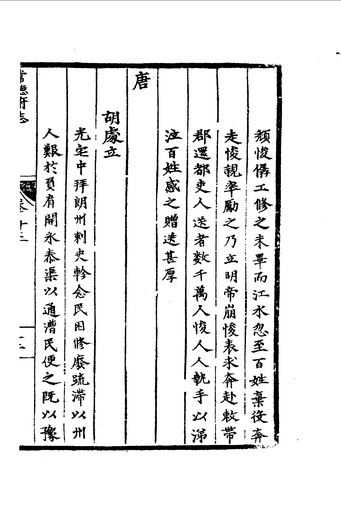 頹悛僝工修之未畢而江水忽至百姓棄役奔
走悛親率勵之乃立明帝崩悛表求奔赴敕帶
郡還都吏人送者數千萬人悛人人執手以涕
泣百姓感之贈送甚厚
唐
胡處立
光宅中拜朗州刺史軫念民困修廢疏滯以州
人艱於負肩開永泰渠以通漕民便之既以豫
常德府志
卷十三